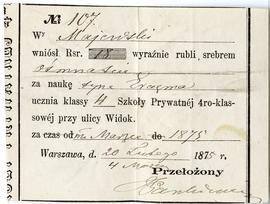 № 107.
W. Majewski
wniósł Rsr. 18 wyraźnie rubli, srebrem
ośmnaście
za naukę syna Erazma
ucznia klassy 4 Szkoły Prywatnéj 4ro-klas-
sowéj przy ulicy Widok.
za czas od Marzec do 1875
Warszawa, d. 20 Lutego 1875 r.
4 Marca
Przełożony